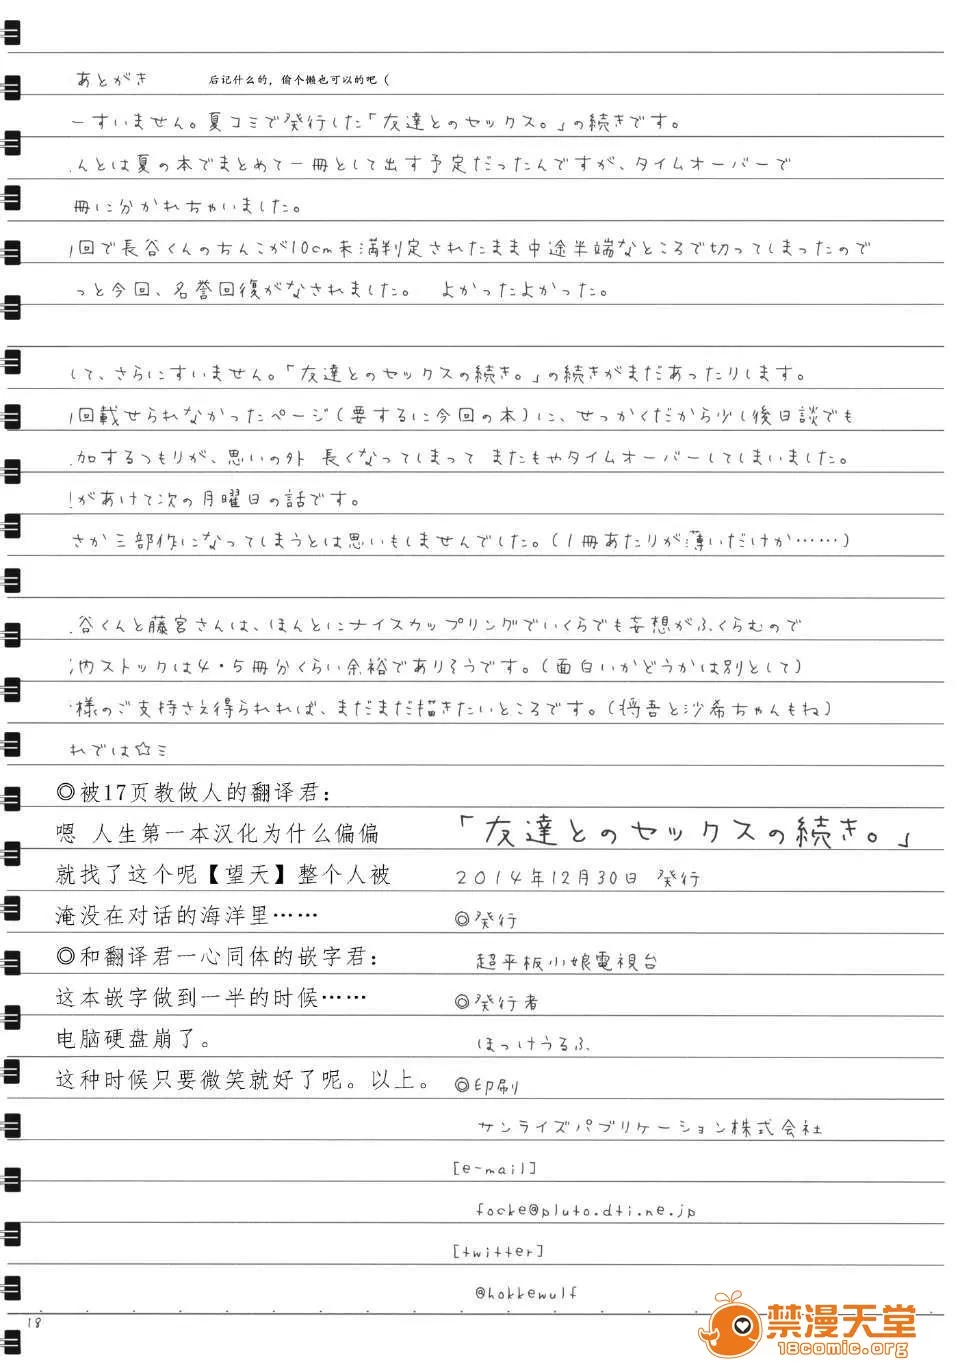 あとがき　后记什么的，偷个懒也可以的吧（
ーすいません。夏コミで発行した「友達とのセックス。」の続きです。
んとは夏の本でまとめて一冊として出す予定だったんですが、タイムオーバーで
冊に分かれちゃいました。
回で長谷くんのちんこが10cm未満判定されたまま中途半端なところで切ってしまったので
っと今回、名誉回復がなされました。　よかったよかった。
して、さらにすいません。「友達とのセックスの続き。」の続きがまだあったりします。
回載せられなかったページ(要するに今回の本)に、せっかくだから少し後日談でも
加するつもりが、思いの外 長くなってしまって またもやタイムオーバーしてしまいました。
があけて次の月曜日の話です。
さか三部作になってしまうとは思いもしませんでした。(1冊あたりが薄いだけか……)
谷くんと藤宮さんは、ほんとにナイスカップリングでいくらでも妄想がふくらむので
内ストックは4・5冊分くらい余裕でありそうです。(面白いかどうかは別として)
様のご支持さえ得られれば、まだまだ描きたいところです。(将吾と沙希ちゃんもね)
れでは☆ミ
◎被17页教做人的翻译君：
嗯 人生第一本汉化为什么偏偏
就找了这个呢【望天】整个人被
淹没在对话的海洋里……
◎和翻译君一心同体的嵌字君：
这本嵌字做到一半的时候……
电脑硬盘崩了。
这种时候只要微笑就好了呢。以上。
「友達とのセックスの続き。」
2014年12月30日 発行
◎発行
超平板小娘電視台
◎発行者
ほっけうるふ
◎印刷
サンライズパブリケーション株式会社
[e-mail]
focke@pluto.dti.ne.jp
[twitter]
@hokkewulf
18
禁漫天堂
18comic.org